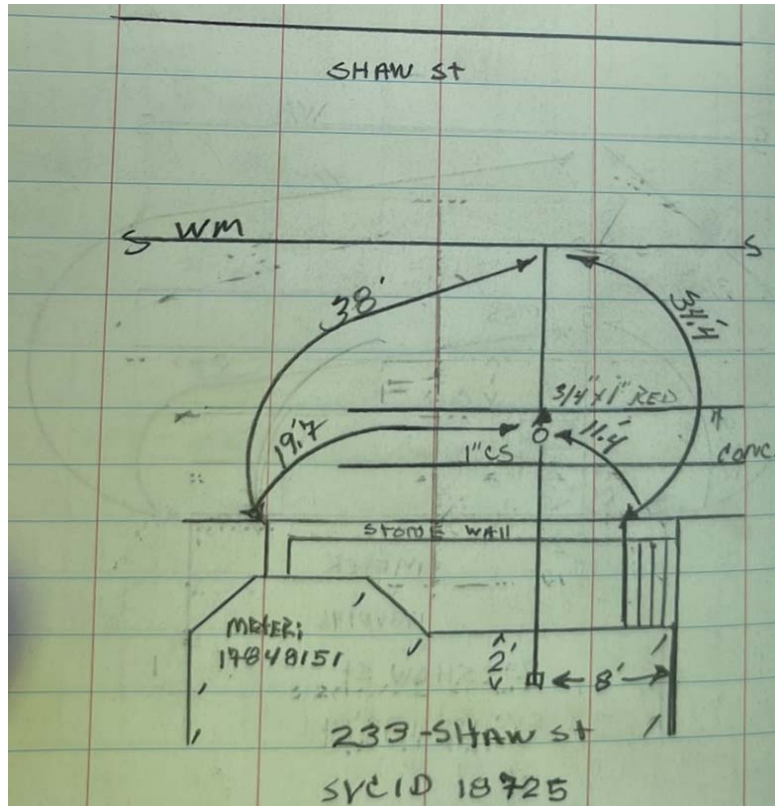 SHAW St
S WM S
38'
34'.4
3/4" x 1" RED
19'.7
O 11'.4
1" CS
CONC
STONE WAll
METER:
17848151
2'
8'
233-SHAW St
SVC ID 18725